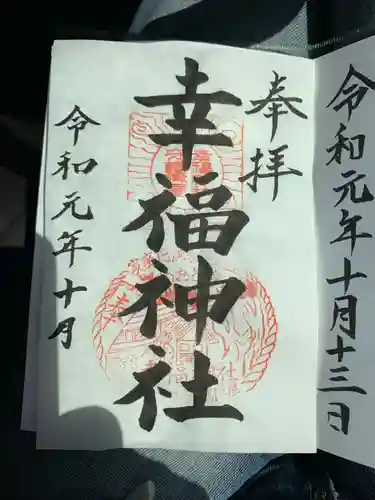 令和元年十月十三日
奉拝
幸福神社
令和元年十月